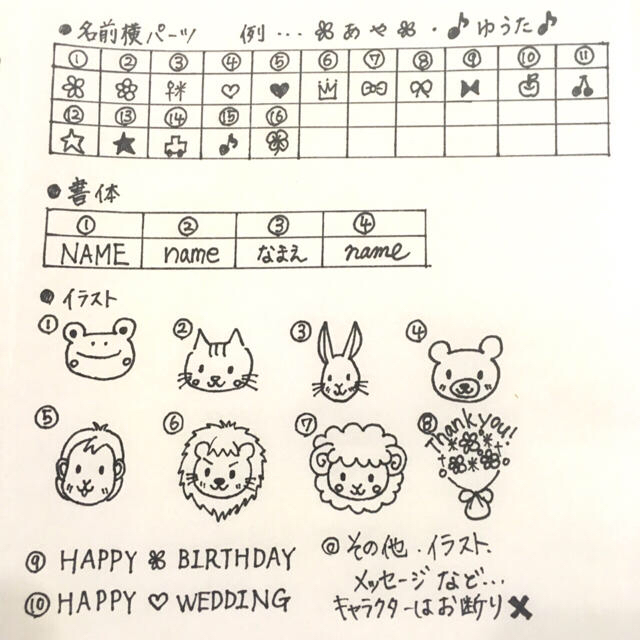 ●名前横パーツ 例… あや ・♪ゆうた♪
① ② ③ ④ ⑤ ⑥ ⑦ ⑧ ⑨ ⑩ ⑪
♡ ♥
⑫ ⑬ ⑭ ⑮ ⑯
☆ ★ ♪
●書体
① ② ③ ④
NAME name なまえ name
●イラスト
① ② ③ ④
⑤ ⑥ ⑦ ⑧
Thank you!
⑨ HAPPY BIRTHDAY
⑩ HAPPY ♡ WEDDING
@その他.イラスト.
メッセージなど…
キャラクターはお断り✖